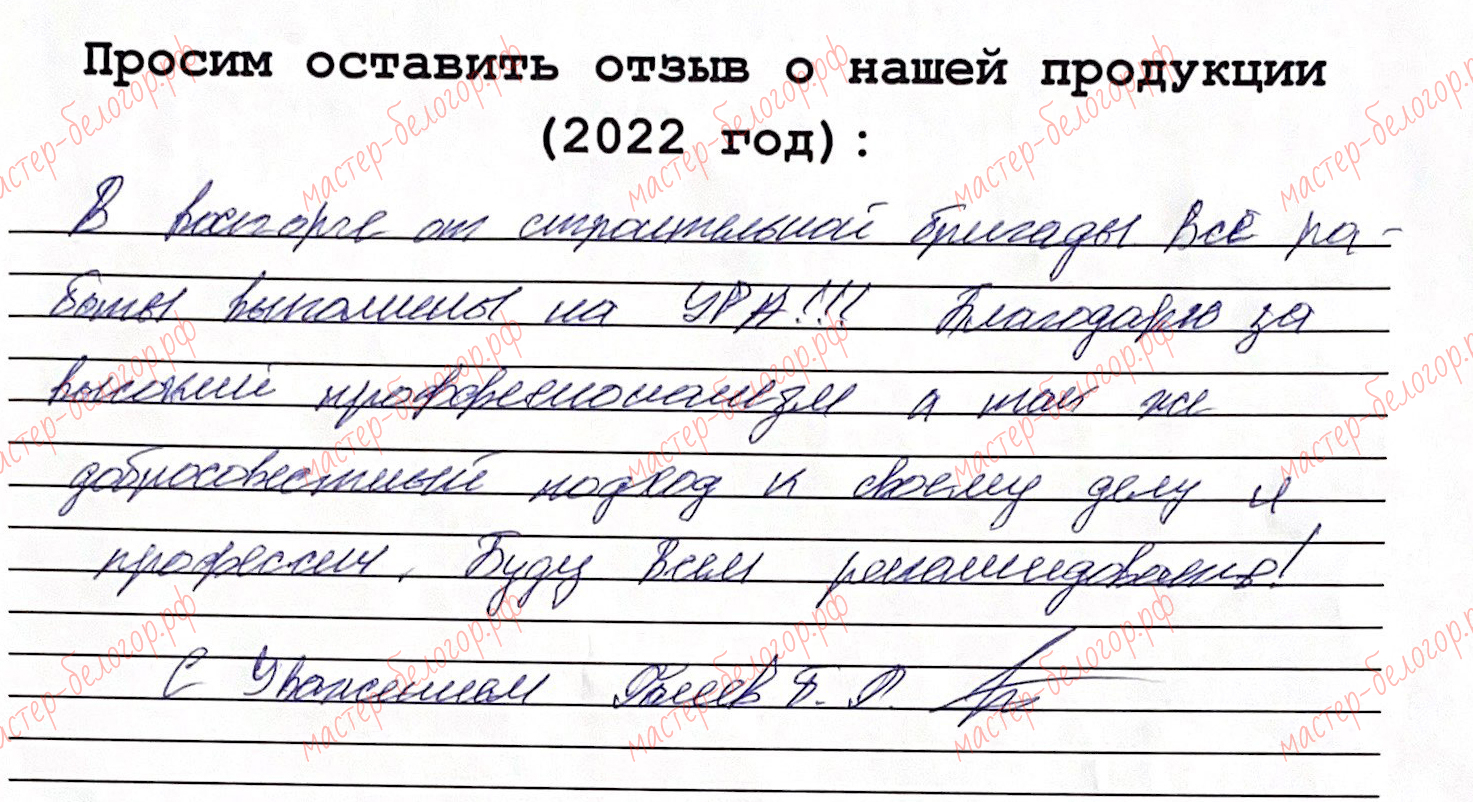 Просим оставить отзыв о нашей продукции
(2022 год):
В восторге от строительной бригады Всё ра-
боты выполнены на УРА!!! Благодарю за
высокий проффесионализм а так же
добросовестный подход к своему делу и
профессии. Буду Всем рекомендовать!
С Уважением Е. А.
мастер-белогор.рф